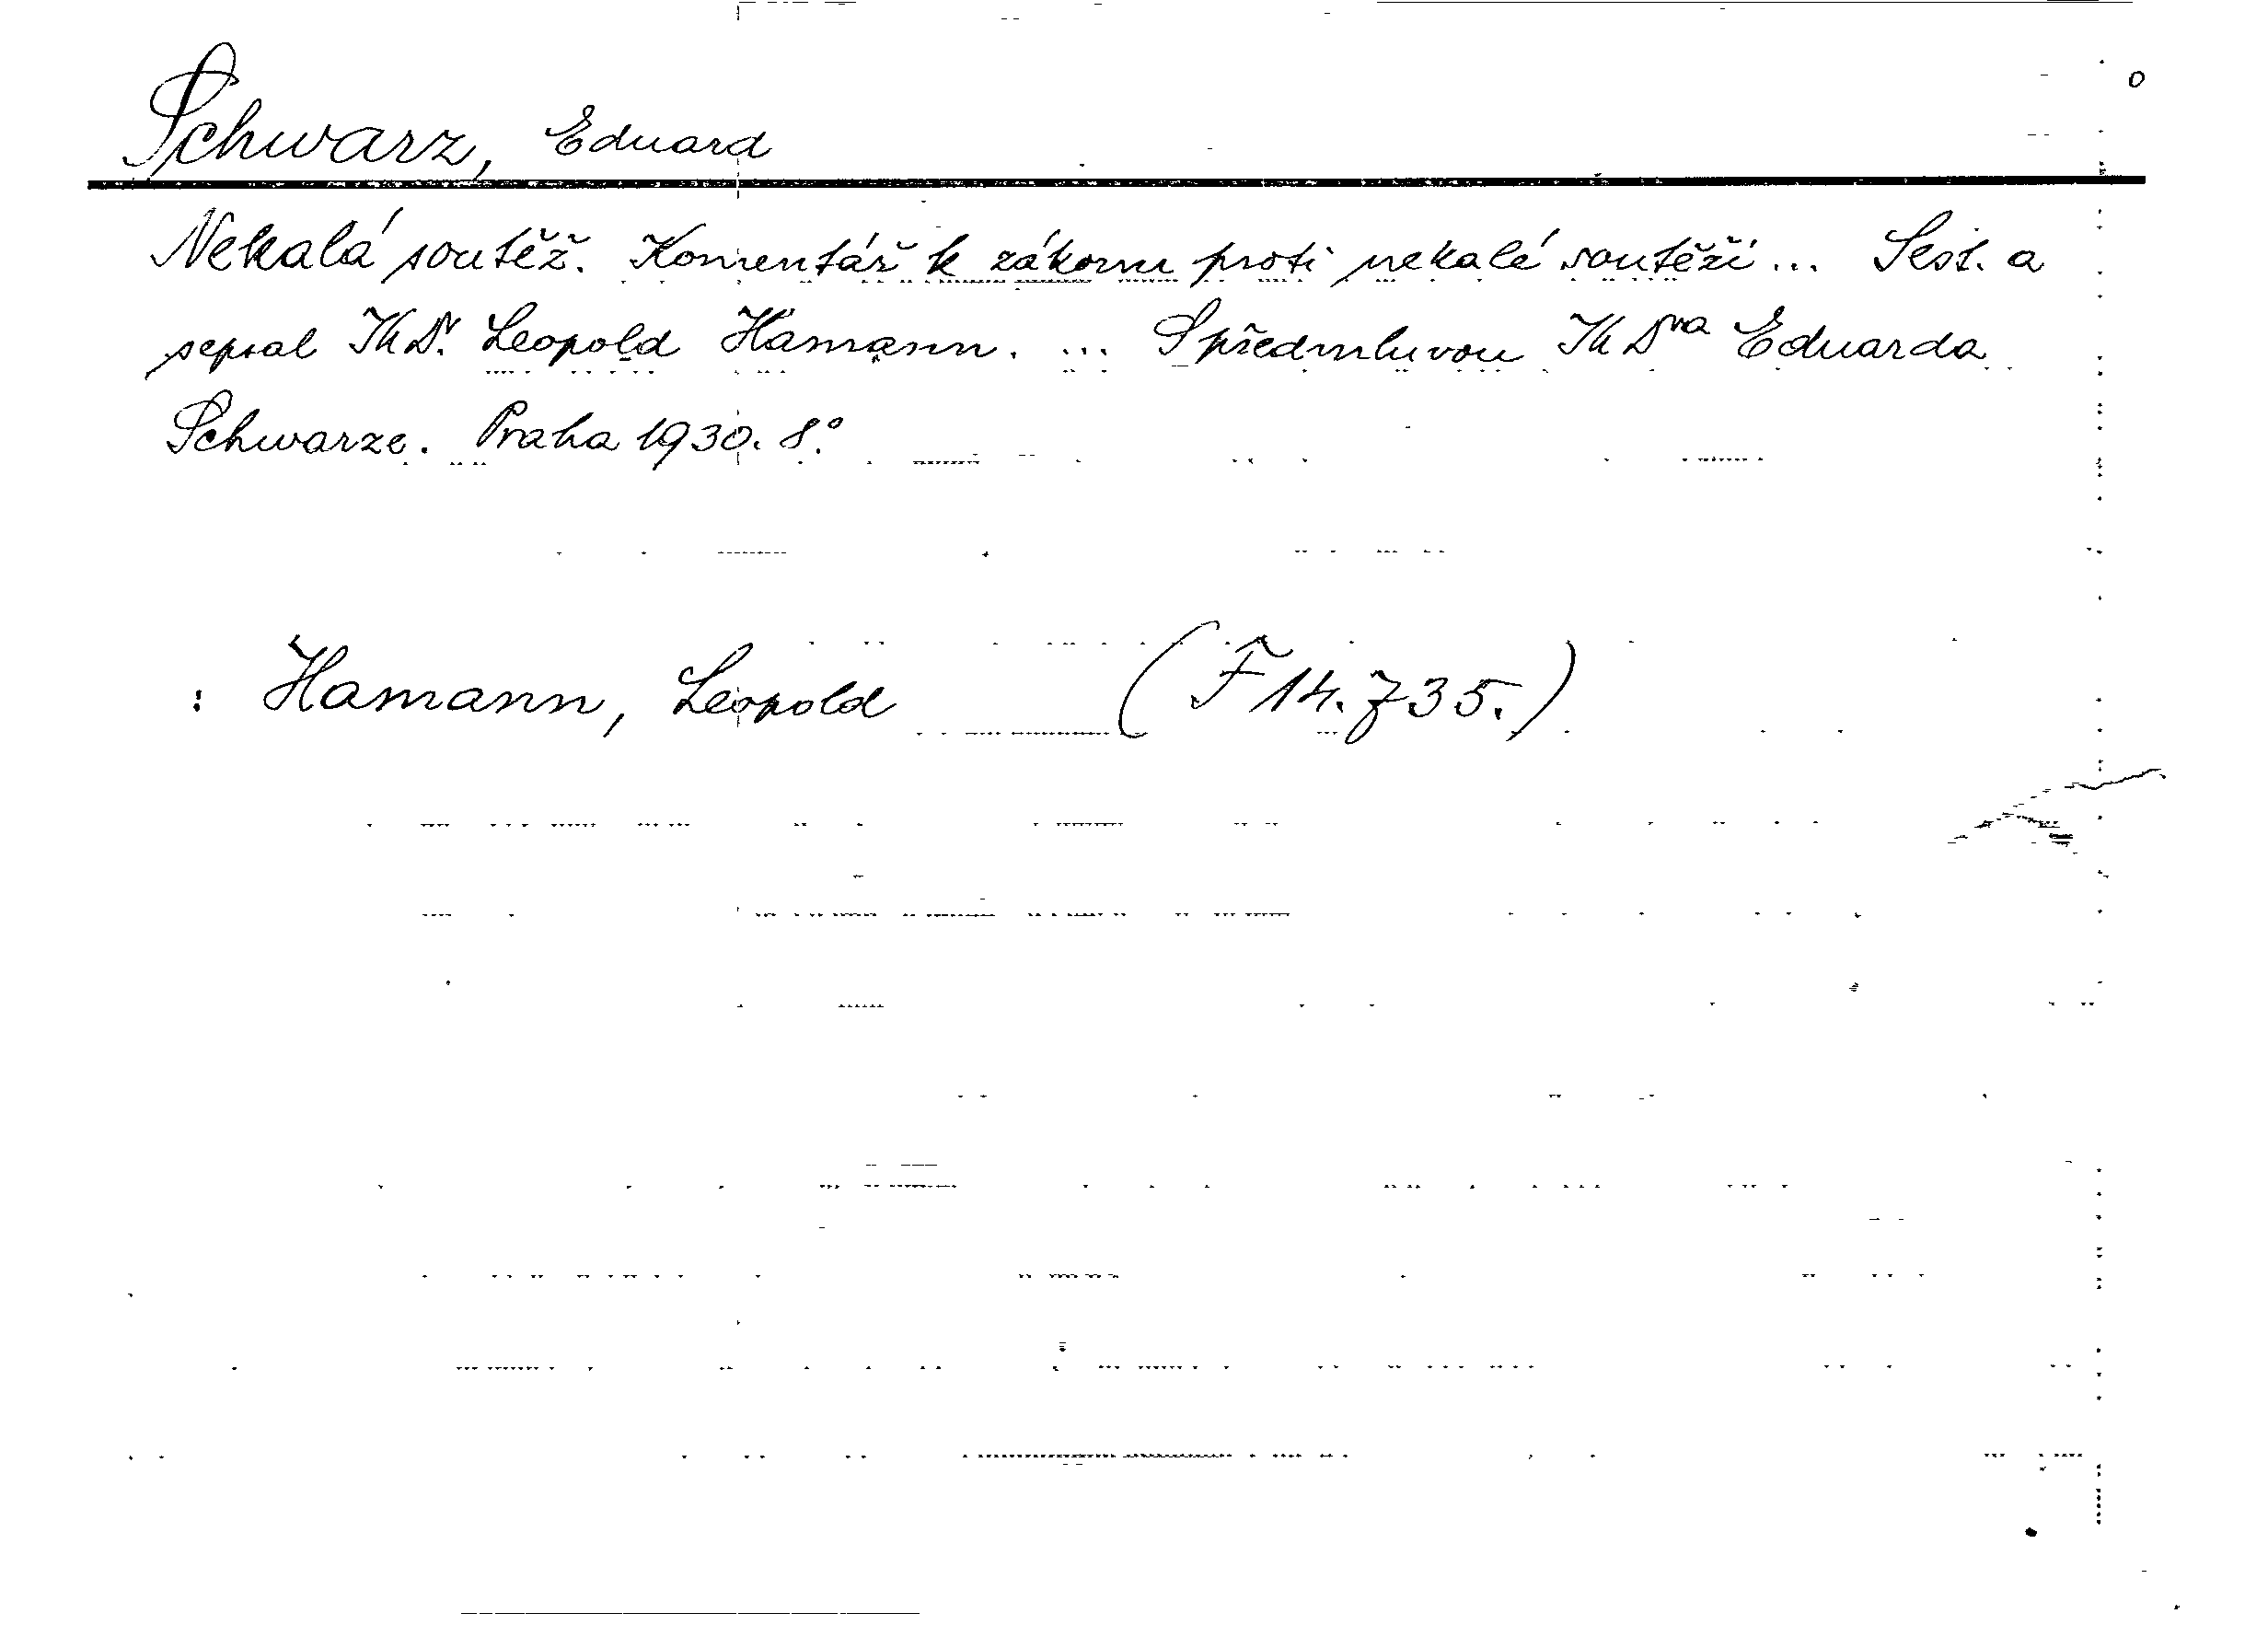 Schwarz, Eduard
Nekalá soutěž. Komentář k zákonu proti nekalé soutěži ... Sest. a
sepsal JUDr. Leopold Hamann. ... S předmluvou JUDra Eduarda
Schwarze. Praha 1930. 8°.
: Hamann, Leopold (F 14.735.)